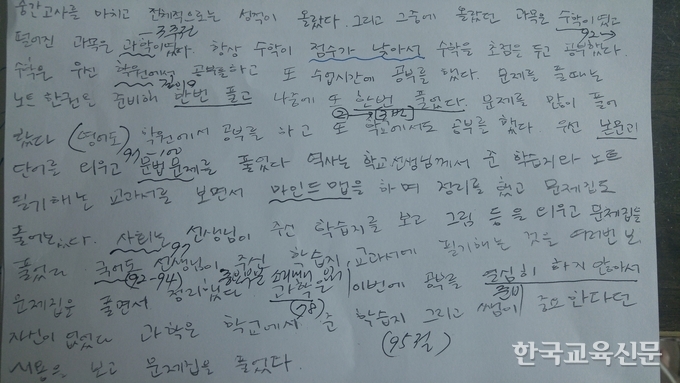 중간고사를 마치고 전체적으로는 성적이 올랐다. 그리고 그중에 올랐던 과목은 수학이였고
92→
떨어진 과목은 과학이였다. 항상 수학이 점수가 낮아서 수학을 초점을 두고 공부했다.
수학을 우선 학원에서 공부를하고 또 수업시간에 공부를 했다. 문제를 풀때는
노트 한권을 준비해 한번 풀고 나중에 또 한번 풀었다. 문제를 많이 풀어
②→
(영어도) 학원에서 공부를 하고 또 학교에서도 공부를 했다 우선 본문과
97→100
단어를 외우고 문법문제를 풀었다 역사는 학교선생님께서 준 학습지와 노트
필기해논 교과서를 보면서 마인드맵을 하며 정리를 했고 문제집도
풀어보았다. 사회는 선생님이 주신 학습지를 보고 그림 등을 외우고 문제집을
97
풀었고 국어도 선생님이 주신 학습지, 교과서에 필기해논 것을 여러번 보
(92-94)
문제집을 풀면서 정리했다 과학은 이번에 공부를 열심히 하지 않아서
(78)
자신이 없었다 과학은 학교에서 준 학습지 그리고 쌤이 중요한다던
(95점)
내용을 보고 문제집을 풀었다.
한국교육신문